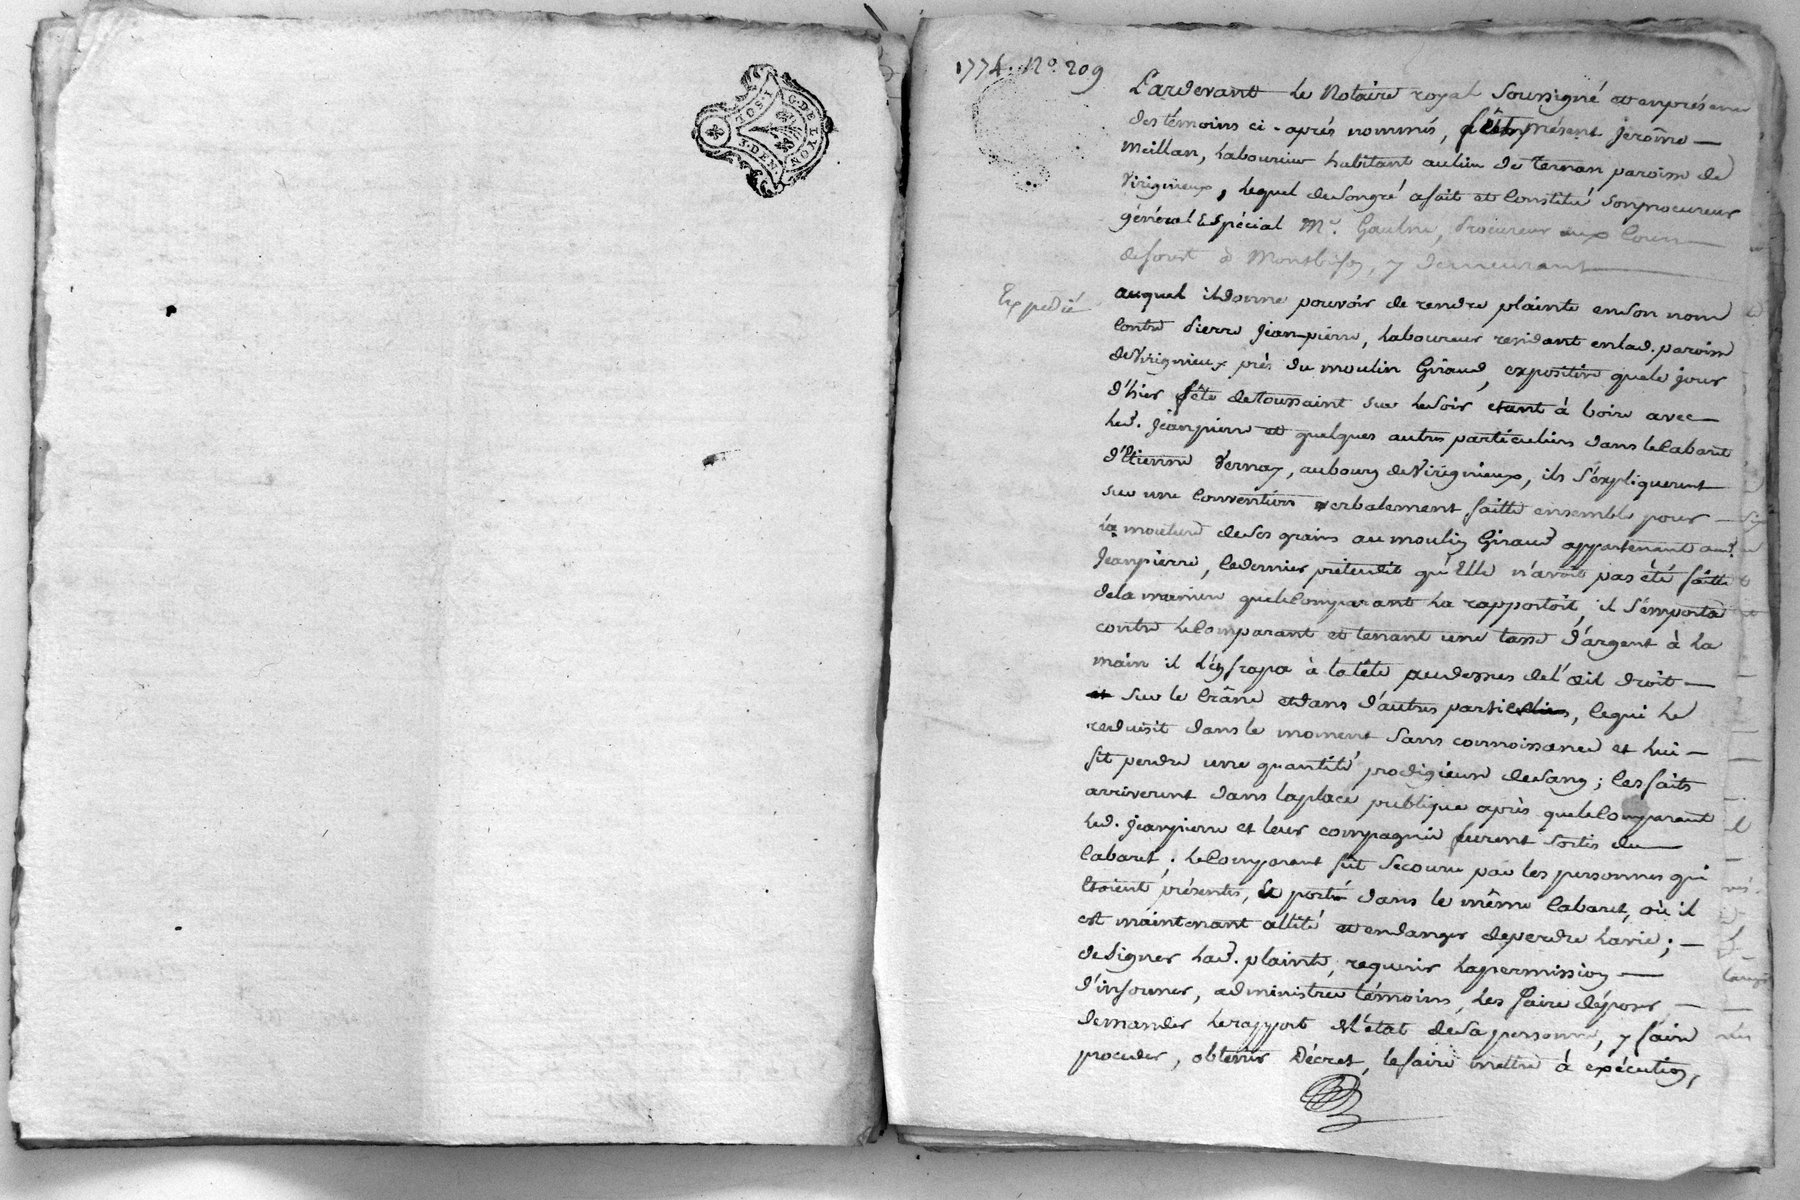 G. DE LYON
3. DEN.
2. SOLS
1774. N.º 209
Pardevant le Notaire royal soussigné et en présence
des témoins ci-après nommés, fut présent jerôme
Meillan, laboureur habitant au lieu de Ternan paroisse de
Virignieux, lequel de son gré a fait et constitué son procureur
général & spécial M.e Gaulne, Procureur aux Cours
de forest à Montbrison, y demeurant
Expédié
auquel il donne pouvoir de rendre plainte en son nom
contre Pierre Jeanpierre, laboureur residant en lad. paroisse
de Virignieux près du moulin Giraud, expositive que le jour
d'hier fête de toussaint sur le soir etant à boire avec
led. Jeanpierre et quelques autres particuliers dans le Cabaret
d'Etienne Vernay, au bourg de Virignieux, ils s'expliquerent
sur une convention verbalement faitte ensemble pour
la mouture de ses grains au moulin Giraud appartenant aud.
Jeanpierre, ce dernier prétendit qu'Elle n'avoit pas été faitte
de la maniere que le Comparant la rapportoit, il s'emporta
contre le Comparant et tenant une tasse d'argent à la
main il l'en frapa à la tête au dessus de l'œil droit
et sur le Crâne et dans d'autres parties, ce qui le
reduisit dans le moment sans connoissance et lui
fit perdre une quantité prodigieuse de sang; ces faits
arriverent dans la place publique après que le Comparant
led. Jeanpierre et leur compagnie furent sortis du
Cabaret; le Comparant fut secouru par les personnes qui
étoient présentes, et porté dans le même Cabaret, où il
est maintenant allité et en danger de perdre la vie;
de signer lad. plainte, requerir la permission
d'informer, administrer témoins, les faire déposer,
demander le rapport de l'état de sa personne, y faire
proceder, obtenir Décret, le faire mettre à exécution,